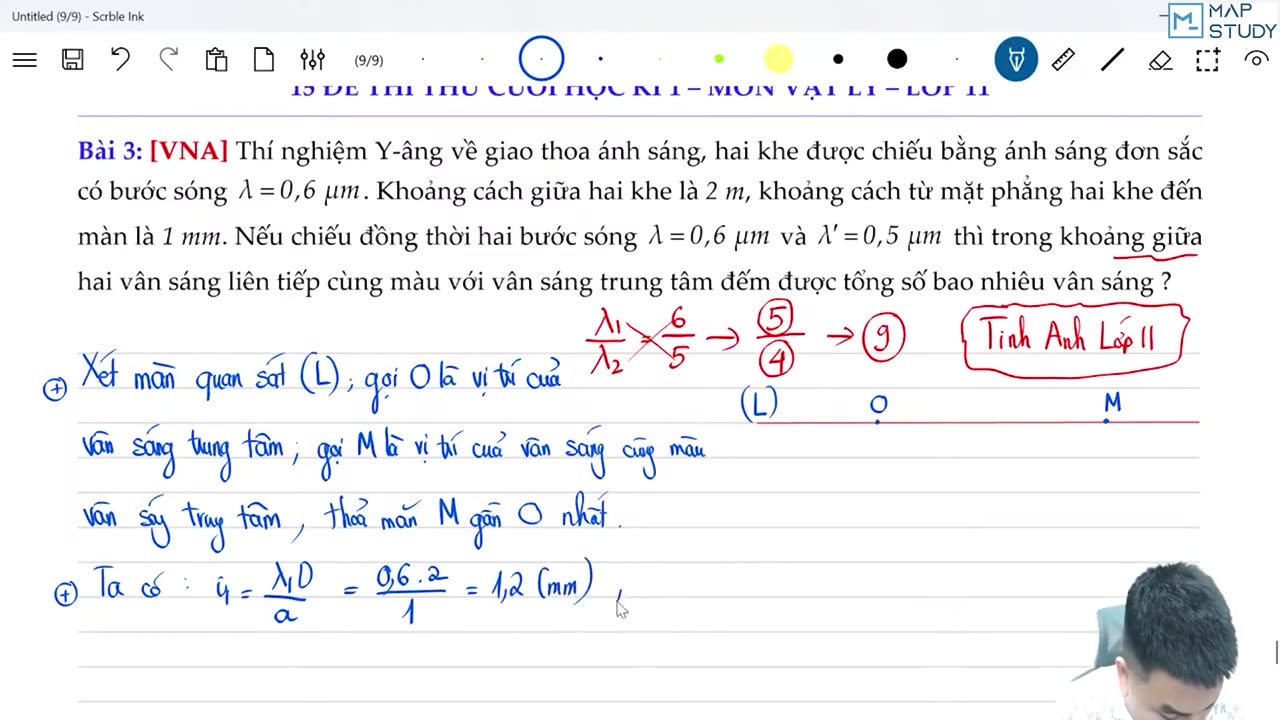 Untitled (9/9) - Scrble Ink
MAP
STUDY
(9/9)
15 ĐỀ THI THỬ CUỐI HỌC KÌ I – MÔN VẬT LÝ – LỚP 11
Bài 3: [VNA] Thí nghiệm Y-âng về giao thoa ánh sáng, hai khe được chiếu bằng ánh sáng đơn sắc
có bước sóng λ = 0,6 μm. Khoảng cách giữa hai khe là 2 m, khoảng cách từ mặt phẳng hai khe đến
màn là 1 mm. Nếu chiếu đồng thời hai bước sóng λ = 0,6 μm và λ' = 0,5 μm thì trong khoảng giữa
hai vân sáng liên tiếp cùng màu với vân sáng trung tâm đếm được tổng số bao nhiêu vân sáng ?
λ1/λ2 = 6/5 → 5/4 → 9
Tinh Anh Lớp 11
+ Xét màn quan sát (L); gọi O là vị trí của
(L) O M
vân sáng trung tâm; gọi M là vị trí của vân sáng cùng màu
vân sáng trung tâm, thoả mãn M gần O nhất.
+ Ta có: i1 = λ1D/a = 0,6.2/1 = 1,2 (mm) ,